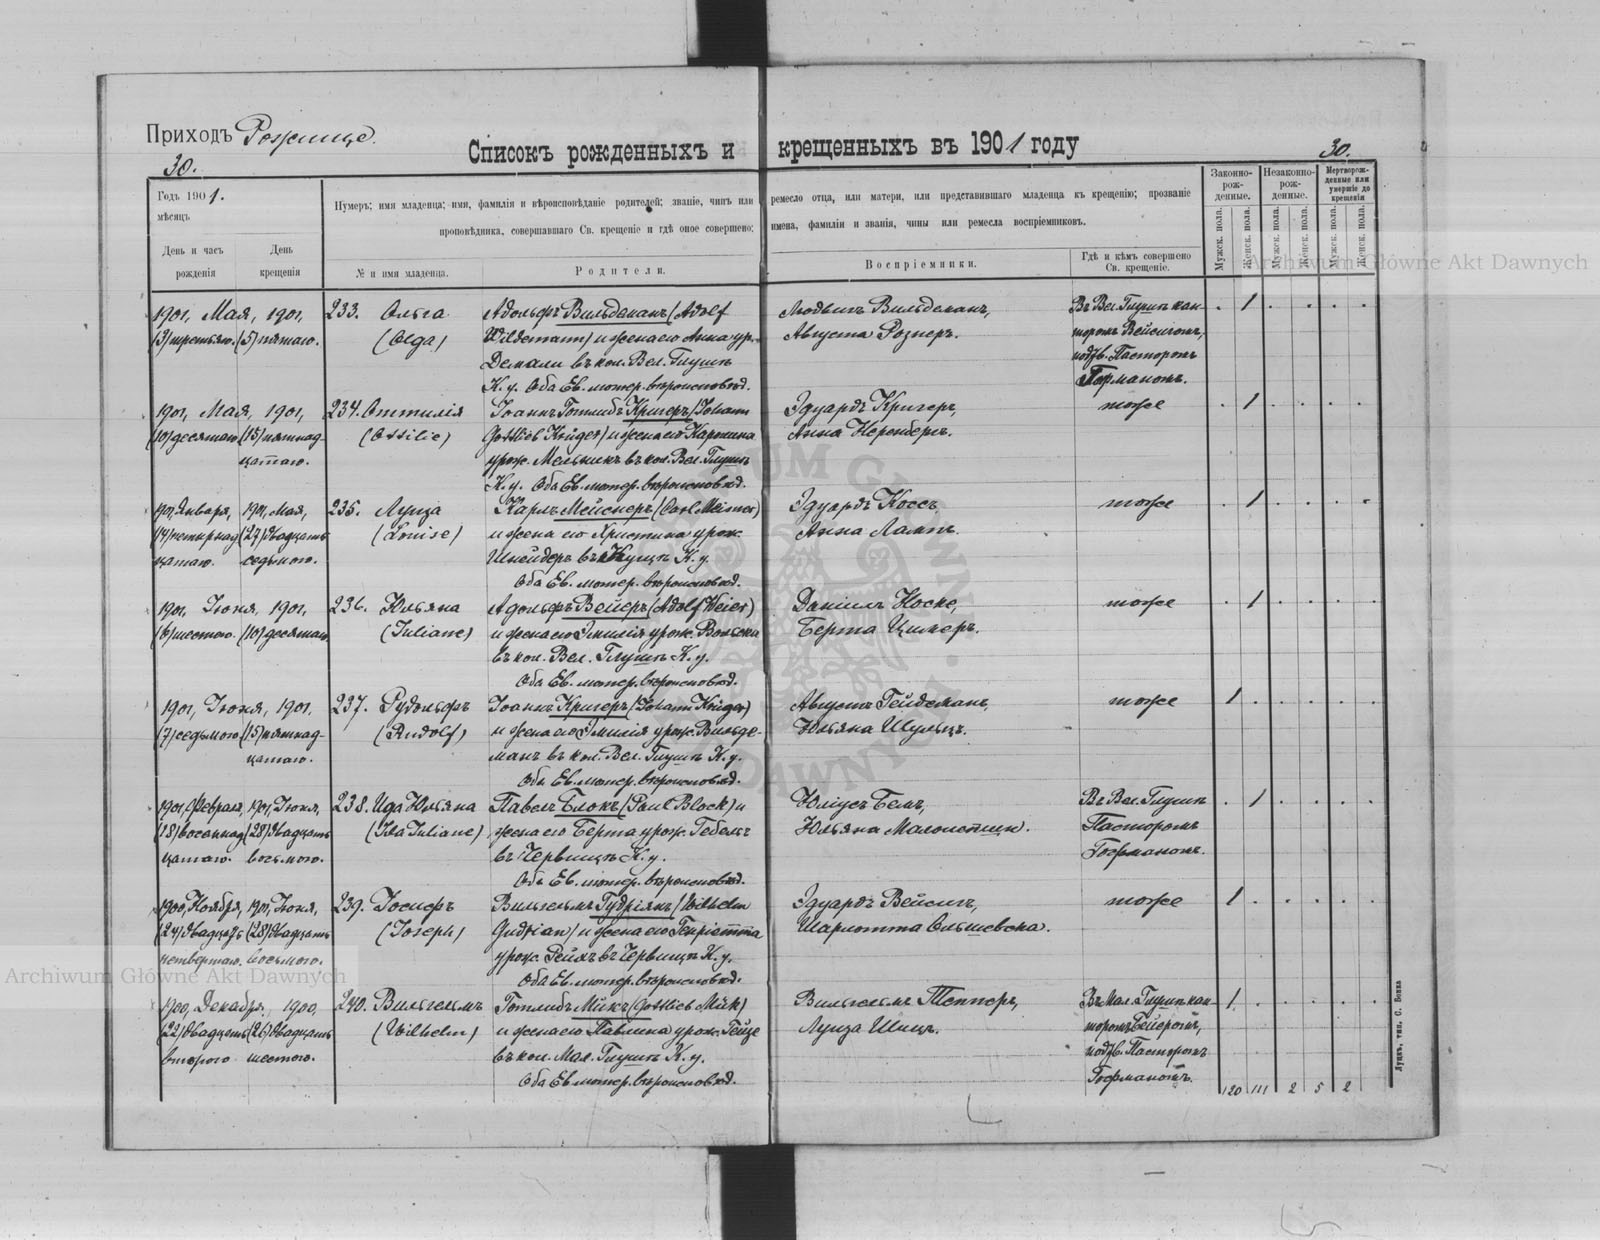 Приходъ Рожище.
30.
Списокъ рожденныхъ и крещенныхъ въ 1901 году
30.
Годъ 1901.
мѣсяцъ
День и часъ рожденія
День крещенія
Нумеръ; имя младенца; имя, фамилія и вѣроисповѣданіе родителей; званіе, чинъ или ремесло отца, или матери, или представившаго младенца къ крещенію; прозваніе
проповѣдника, совершавшаго Св. крещеніе и гдѣ оное совершено; имена, фамиліи и званія, чины или ремесла воспріемниковъ.
№ и имя младенца.
Родители.
Воспріемники.
Гдѣ и кѣмъ совершено Св. крещеніе.
Законно-рож-денные.
Незаконно-рож-денные.
Мертворож-денные или умершіе до крещенія
Мужск. пола.
Женск. пола.
Мужск. пола.
Женск. пола.
Мужск. пола.
Женск. пола.
1901, Мая, 1901, 233. Ольга Адольфъ Вильдеманъ (Adolf Людвигъ Вильдеманъ, Въ Вел. Глушѣ кан- 1
(3) третьяго. (5) пятаго. (Olga) Wildemann) и жена его Анна ур. Августа Рознеръ. торомъ Вейсигомъ,
въ кол. Вел. Глушѣ подтв. Пасторомъ
К. у. Оба Ев. лютер. вѣроисповѣд. Гофманомъ.
1901, Мая, 1901, 234. Оттилія Іоаннъ Готлибъ Кригеръ (Johann Эдуардъ Кригеръ, тоже 1
(10) десятаго (15) пятнад- (Ottilie) Gottlieb Krüger) и жена его Каролина Анна Неренбергъ.
цатаго. урож. Мельникъ въ кол. Вел. Глушѣ
К. у. Оба Ев. лютер. вѣроисповѣд.
1901, Января, 1901, Мая, 235. Луиза Карлъ Мейснеръ (Carl Meisner) Эдуардъ Коссъ, тоже 1
(14) четырнад- (27) двадцать (Louise) и жена его Христина урож. Анна Лампъ.
цатаго. седьмого. Шнейдеръ въ К. у.
Оба Ев. лютер. вѣроисповѣд.
1901, Іюня, 1901, 236. Юльяна Адольфъ Вейеръ (Adolf Weier) Даніилъ Носке, тоже 1
(6) шестого. (10) десятаго (Juliane) и жена его Эмилія урож. Вольска Берта Цимеръ.
въ кол. Вел. Глушѣ К. у.
Оба Ев. лютер. вѣроисповѣд.
1901, Іюня, 1901, 237. Рудольфъ Іоаннъ Кригеръ (Johann Krüger) Августъ Гейдеманъ, тоже 1
(7) седьмого (15) пятнад- (Rudolf) и жена его Эмилія урож. Вильде- Юльяна Шульцъ.
цатаго. манъ въ кол. Вел. Глушѣ К. у.
Оба Ев. лютер. вѣроисповѣд.
1901, Февраля, 1901, Іюня, 238. Ида Юльяна Павелъ Блокъ (Paul Block) и Юліусъ Бемъ, Въ Вел. Глушѣ 1
(18) восемнад- (28) двадцать (Ida Juliane) жена его Берта урож. Гебель Юльяна Пасторомъ
цатаго. восьмого. въ Червищѣ К. у. Гофманомъ.
Оба Ев. лютер. вѣроисповѣд.
1900, Ноября, 1901, Іюня, 239. Іосифъ Вильгельмъ Гудріянъ (Wilhelm Эдуардъ Вейсигъ, тоже 1
(24) двадцать (28) двадцать (Joseph) Gudrian) и жена его Генріетта Шарлотта Ольшевска.
четвертаго. восьмого. урож. Рейхъ въ Червищѣ К. у.
Оба Ев. лютер. вѣроисповѣд.
1900, Декабря, 1900, 240. Вильгельмъ Готлибъ Микъ (Gottlieb Mück) Вильгельмъ Тепперъ, Въ Мал. Глушѣ кан- 1
(22) двадцать (26) двадцать (Wilhelm) и жена его Павлина урож. Гейзе Луиза Шицъ. торомъ Бейеромъ,
второго шестого. въ кол. Мал. Глушѣ К. у. подтв. Пасторомъ
Оба Ев. лютер. вѣроисповѣд. Гофманомъ.
120 111 2 5 2
Луцкъ, тип. С. Бонка
Archiwum Główne Akt Dawnych
Archiwum Główne Akt Dawnych